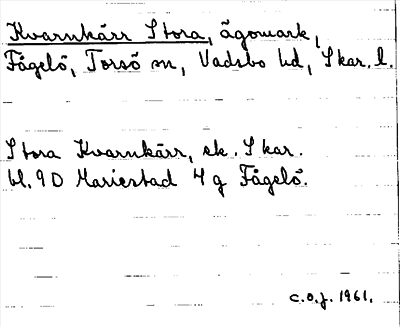 Kvarnkärr Stora, ägomark,
Fågelö, Torsö sn, Vadsbo hd, Skar. l.
Stora Kvarnkärr, ek. Skar.
bl. 9D Mariestad 4 g Fågelö.
c.o.j. 1961.